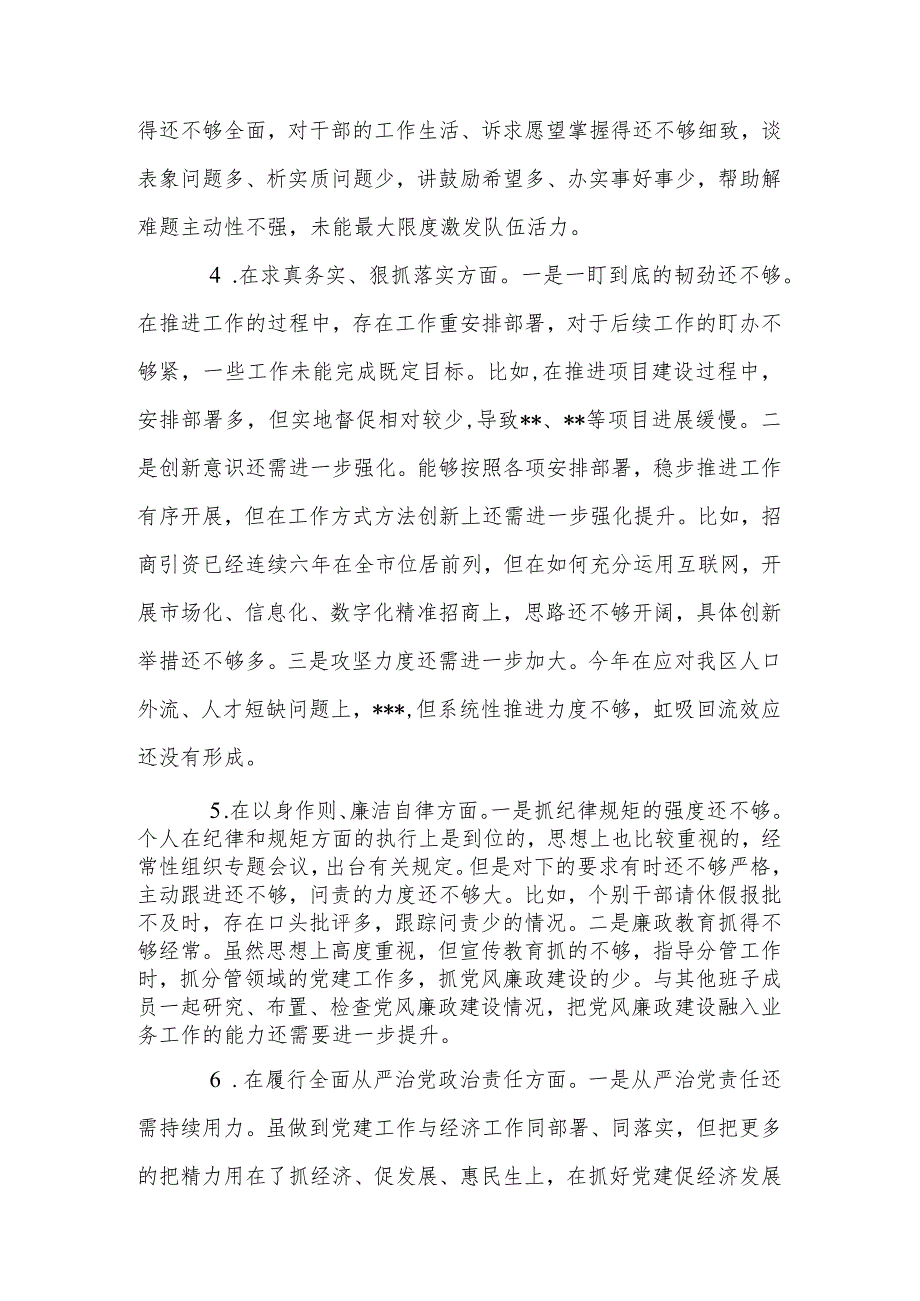 得还不够全面，对干部的工作生活、诉求愿望掌握得还不够细致，谈
表象问题多、析实质问题少，讲鼓励希望多、办实事好事少，帮助解
难题主动性不强，未能最大限度激发队伍活力。
4 .在求真务实、狠抓落实方面。一是一盯到底的韧劲还不够。
在推进工作的过程中，存在工作重安排部署，对于后续工作的盯办不
够紧，一些工作未能完成既定目标。比如,在推进项目建设过程中，
安排部署多，但实地督促相对较少,导致**、**等项目进展缓慢。二
是创新意识还需进一步强化。能够按照各项安排部署，稳步推进工作
有序开展，但在工作方式方法创新上还需进一步强化提升。比如，招
商引资已经连续六年在全市位居前列，但在如何充分运用互联网，开
展市场化、信息化、数字化精准招商上，思路还不够开阔，具体创新
举措还不够多。三是攻坚力度还需进一步加大。今年在应对我区人口
外流、人才短缺问题上，***,但系统性推进力度不够，虹吸回流效应
还没有形成。
5.在以身作则、廉洁自律方面。一是抓纪律规矩的强度还不够。
个人在纪律和规矩方面的执行上是到位的，思想上也比较重视的，经
常性组织专题会议，出台有关规定。但是对下的要求有时还不够严格，
主动跟进还不够，问责的力度还不够大。比如，个别干部请休假报批
不及时，存在口头批评多，跟踪问责少的情况。二是廉政教育抓得不
够经常。虽然思想上高度重视，但宣传教育抓的不够，指导分管工作
时，抓分管领域的党建工作多，抓党风廉政建设的少。与其他班子成
员一起研究、布置、检查党风廉政建设情况，把党风廉政建设融入业
务工作的能力还需要进一步提升。
6 .在履行全面从严治党政治责任方面。一是从严治党责任还
需持续用力。虽做到党建工作与经济工作同部署、同落实，但把更多
的把精力用在了抓经济、促发展、惠民生上，在抓好党建促经济发展